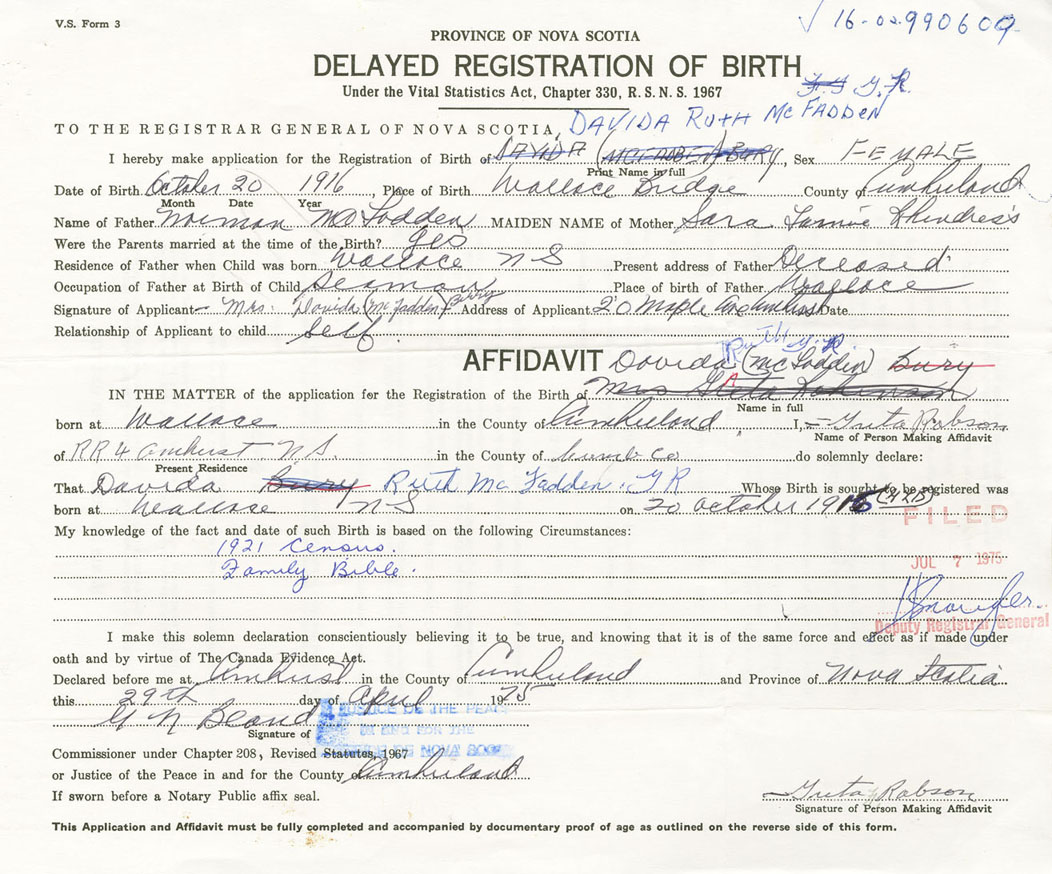 V.S. Form 3
√ 16-02-990609
PROVINCE OF NOVA SCOTIA
DELAYED REGISTRATION OF BIRTH
Under the Vital Statistics Act, Chapter 330, R. S. N. S. 1967
G.R.
TO THE REGISTRAR GENERAL OF NOVA SCOTIA, DAVIDA RUTH McFADDEN
I hereby make application for the Registration of Birth of DAVIDA (McFADDEN) BURY, Sex FEMALE
Print Name in full
Date of Birth October 20 1916, Place of Birth Wallace Bridge County of Cumberland
Month Date Year
Name of Father Norman McFadden MAIDEN NAME of Mother Sara
Were the Parents married at the time of the Birth? Yes
Residence of Father when Child was born Wallace N S Present address of Father Deceased
Occupation of Father at Birth of Child Seaman Place of birth of Father Wallace
Signature of Applicant Mrs. Davida (McFadden) Bury Address of Applicant 20 Maple Ave Amherst Date
Relationship of Applicant to child Self
Ruth G.R.
AFFIDAVIT Davida (McFadden) Bury
IN THE MATTER of the application for the Registration of the Birth of Mrs Greta
Name in full
born at Wallace in the County of Cumberland I, Greta Robson
Name of Person Making Affidavit
of RR 4 Amherst N.S. in the County of Cumb Co do solemnly declare:
Present Residence
That Davida Bury Ruth McFadden G R Whose Birth is sought to be registered was
born at Wallace N S on 20 October 1916
FILED
My knowledge of the fact and date of such Birth is based on the following Circumstances:
1921 Census.
Family Bible.
JUL 7 1975
Deputy Registrar General
I make this solemn declaration conscientiously believing it to be true, and knowing that it is of the same force and effect as if made under
oath and by virtue of The Canada Evidence Act.
Declared before me at Amherst in the County of Cumberland and Province of Nova Scotia
this 29th day of April 1975
G N Bland
JUSTICE OF THE PEACE
IN AND FOR THE
Signature of
Commissioner under Chapter 208, Revised Statutes, 1967
or Justice of the Peace in and for the County of Cumberland
If sworn before a Notary Public affix seal.
Greta Robson
Signature of Person Making Affidavit
This Application and Affidavit must be fully completed and accompanied by documentary proof of age as outlined on the reverse side of this form.